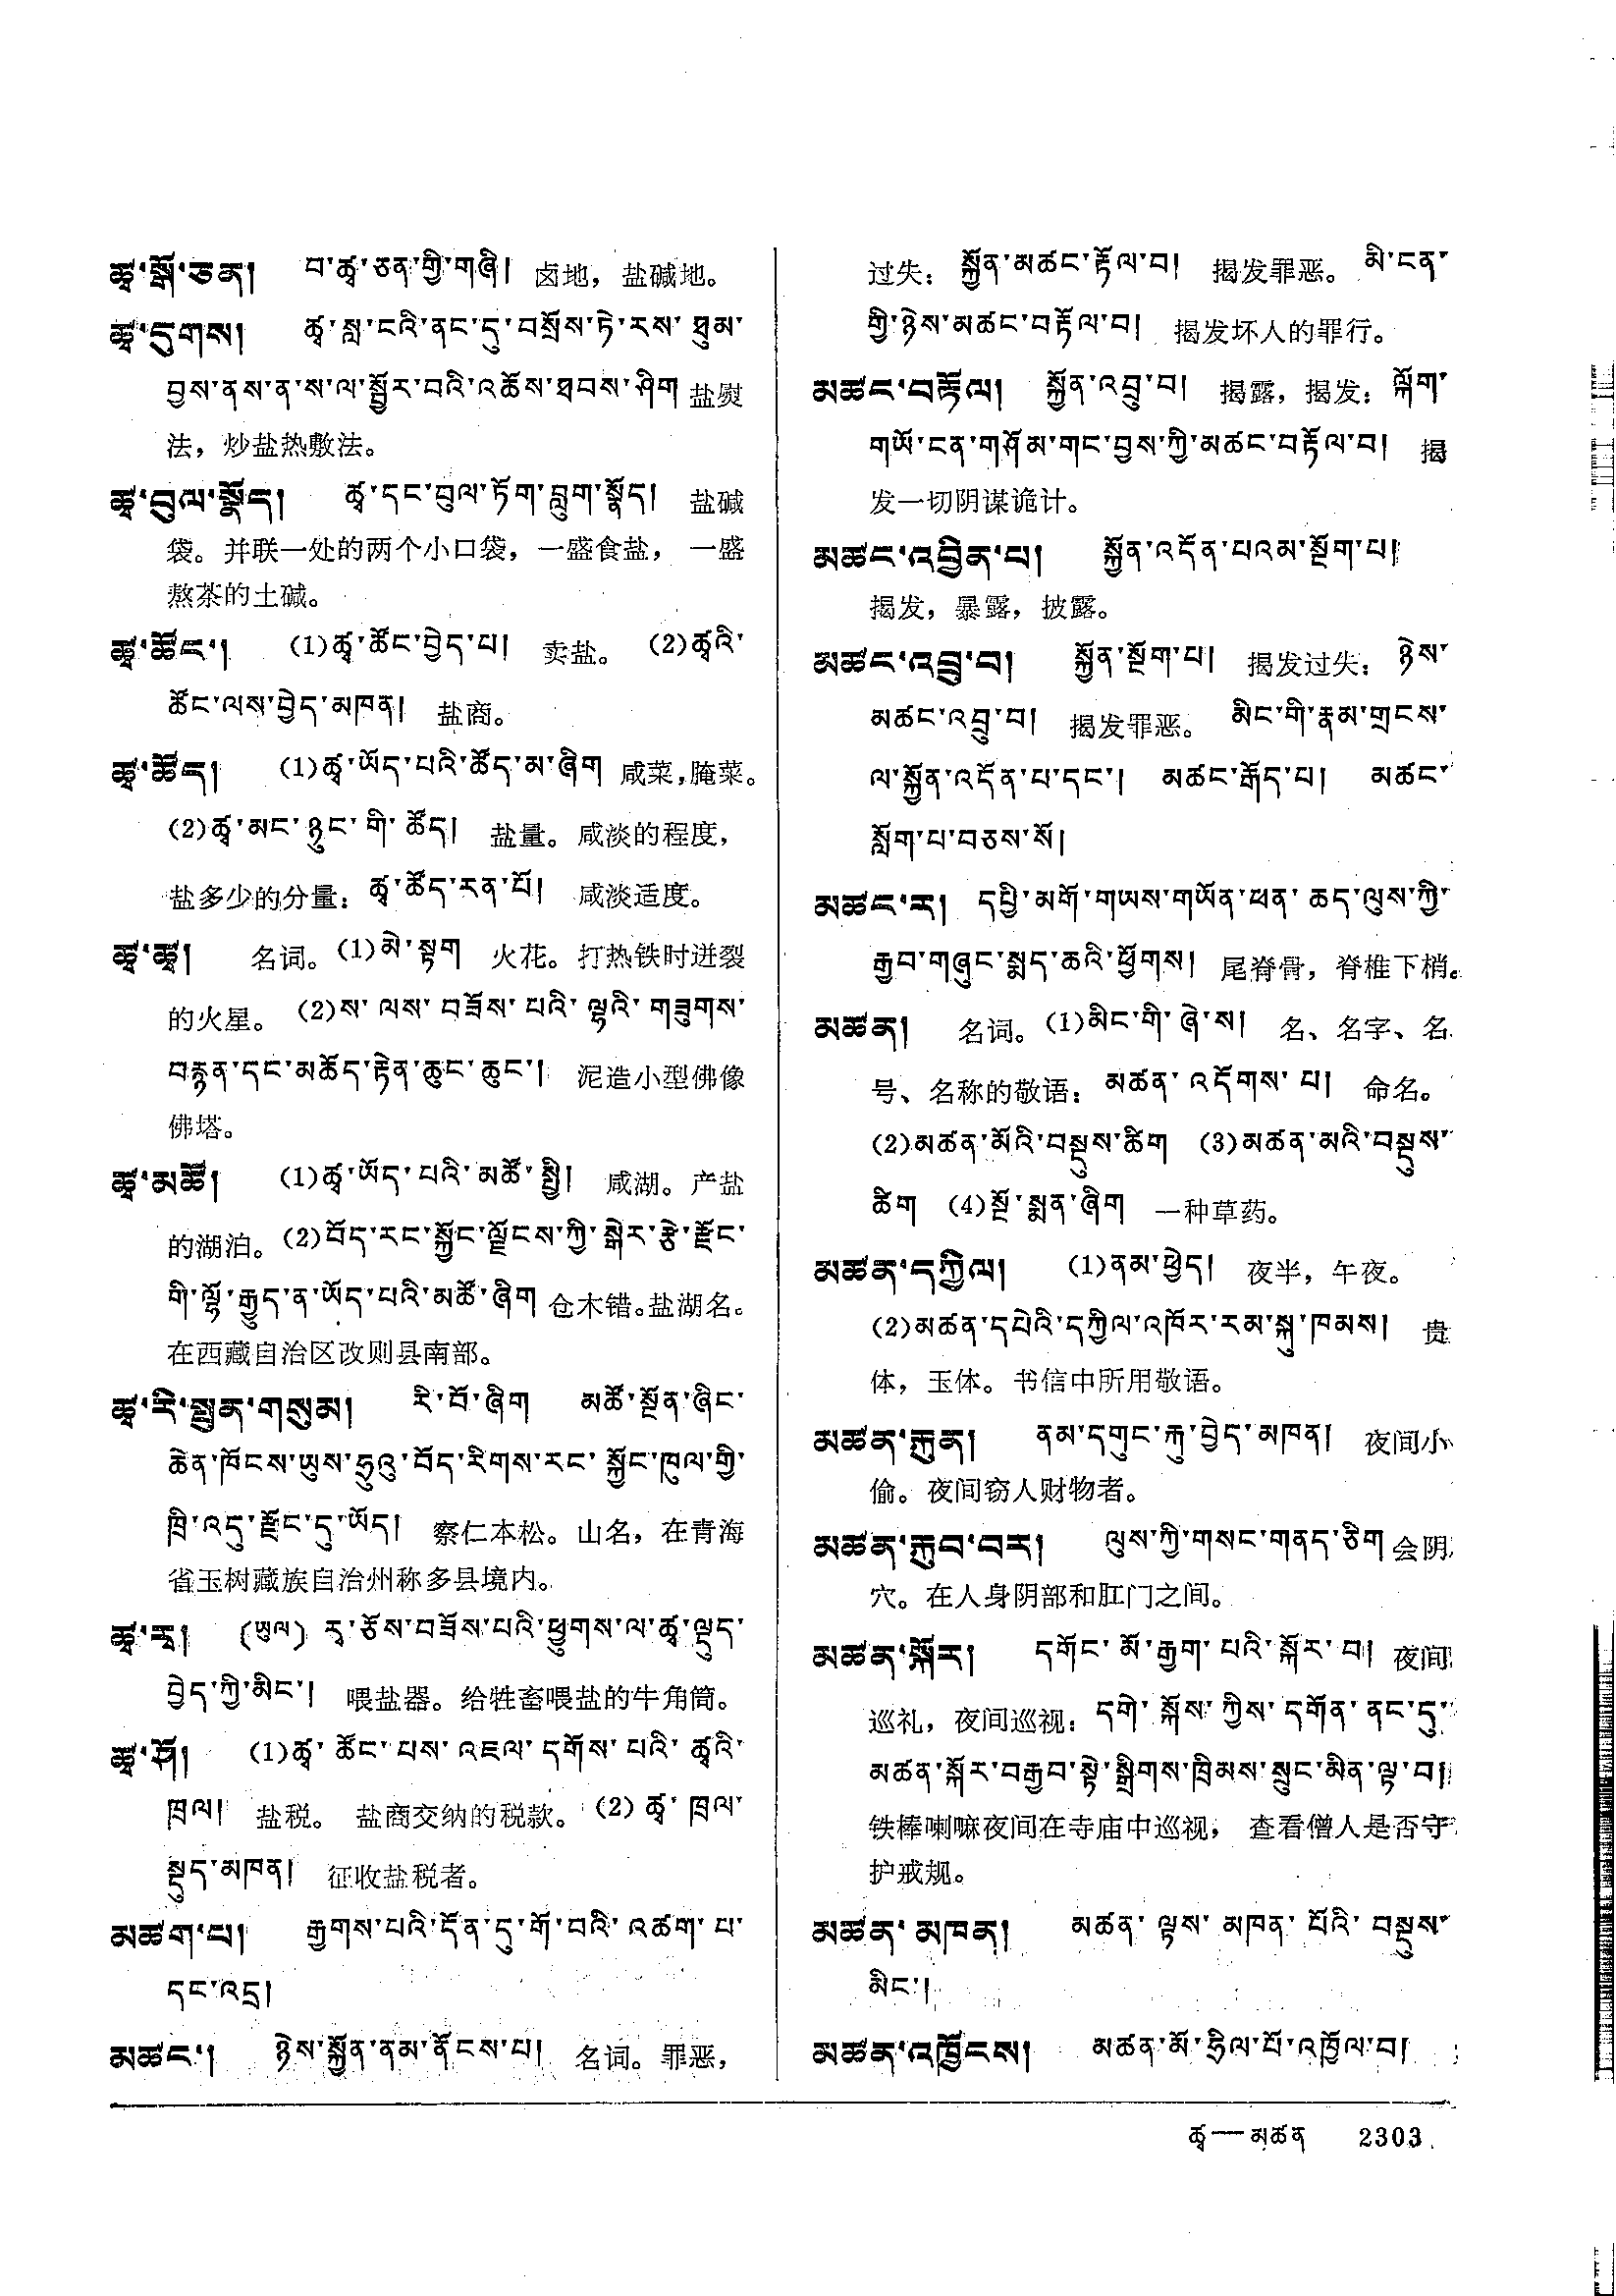 ཚྭ་སྒོ་ཅན། བ་ཚྭ་ཅན་གྱི་གཞི། 卤地，盐碱地。
ཚྭ་དུགས། ཚྭ་སླ་ངའི་ནང་དུ་བསྲོས་ཏེ་རས་ཐུམ་
བྱས་ནས་ན་ས་ལ་སྦྱོར་བའི་འཚོས་ཐབས་ཤིག 盐熨
法，炒盐热敷法。
ཚྭ་བུལ་སྣོད། ཚྭ་དང་བུལ་ཏོག་བླུག་སྣོད། 盐碱
袋。并联一处的两个小口袋，一盛食盐，一盛
熬茶的土碱。
ཚྭ་ཚོང་། (1)ཚྭ་ཚོང་བྱེད་པ། 卖盐。 (2)ཚྭའི་
ཚོང་ལས་བྱེད་མཁན། 盐商。
ཚྭ་ཚོད། (1)ཚྭ་ཡོད་པའི་ཚོད་མ་ཞིག 咸菜，腌菜。
(2)ཚྭ་མང་ཉུང་གི་ཚོད། 盐量。咸淡的程度，
盐多少的分量：ཚྭ་ཚོད་རན་པོ། 咸淡适度。
ཚྭ་ཚྭ། 名词。(1)མེ་སྟག 火花。打热铁时迸裂
的火星。(2)ས་ལས་བཟོས་པའི་ལྷའི་གཟུགས་
བརྙན་དང་མཆོད་རྟེན་ཆུང་ཆུང་། 泥造小型佛像
佛塔。
ཚྭ་མཚོ། (1)ཚྭ་ཡོད་པའི་མཚོ་སྤྱི། 咸湖。产盐
的湖泊。(2)བོད་རང་སྐྱོང་ལྗོངས་ཀྱི་སྒེར་རྩེ་རྫོང་
གི་ལྷོ་རྒྱུད་ན་ཡོད་པའི་མཚོ་ཞིག 仓木错。盐湖名。
在西藏自治区改则县南部。
ཚྭ་རི་སྤུན་གསུམ། རི་བོ་ཞིག མཚོ་སྔོན་ཞིང་
ཆེན་ཁོངས་ཡུས་ཧྲུའུ་བོད་རིགས་རང་སྐྱོང་ཁུལ་གྱི་
ཁྲི་འདུ་རྫོང་དུ་ཡོད། 察仁本松。山名，在青海
省玉树藏族自治州称多县境内。
ཚྭ་རྭ། (ཡུལ) རྭ་ཅོས་བཟོས་པའི་ཕྱུགས་ལ་ཚྭ་ལྡུད་
བྱེད་ཀྱི་མིང་། 喂盐器。给牲畜喂盐的牛角筒。
ཚྭ་ཤོ། (1)ཚྭ་ཚོང་པས་འཇལ་དགོས་པའི་ཚྭའི་
ཁྲལ། 盐税。 盐商交纳的税款。(2)ཚྭ་ཁྲལ་
སྡུད་མཁན། 征收盐税者。
མཚག་པ། རྒྱགས་པའི་དོན་དུ་གོ་བའི་འཚག་པ་
དང་འདྲ།
མཚང་། ཉེས་སྐྱོན་ནམ་ནོངས་པ། 名词。罪恶，
过失：སྐྱོན་མཚང་རྟོལ་བ། 揭发罪恶。མི་ངན་
གྱི་ཉེས་མཚང་བརྟོལ་བ། 揭发坏人的罪行。
མཚང་བརྟོལ། སྐྱོན་འབྲུ་བ། 揭露，揭发：ལྐོག་
གཡོ་ངན་གཤོམ་གང་བྱས་ཀྱི་མཚང་བརྟོལ་བ། 揭
发一切阴谋诡计。
མཚང་འབྱིན་པ། སྐྱོན་འདོན་པའམ་སྔོག་པ།
揭发，暴露，披露。
མཚང་འབྲུ་བ། སྐྱོན་སྔོག་པ། 揭发过失；ཉེས་
མཚང་འབྲུ་བ། 揭发罪恶。མིང་གི་རྣམ་གྲངས་
ལ་སྐྱོན་འདོན་པ་དང་། མཚང་རྒོད་པ། མཚང་
སློག་པ་བཅས་སོ།
མཚང་ར། དཔྱི་མགོ་གཡས་གཡོན་ཕན་ཆད་ལུས་ཀྱི་
རྒྱབ་གཞུང་སྨད་ཆའི་ཕྱོགས། 尾脊骨，脊椎下梢。
མཚན། 名词。(1)མིང་གི་ཞེ་ས། 名、名字、名
号、名称的敬语：མཚན་འདོགས་པ། 命名。
(2)མཚན་མོའི་བསྡུས་ཚིག (3)མཚན་མའི་བསྡུས་
ཚིག (4)སྔོ་སྨན་ཞིག 一种草药。
མཚན་དཀྱིལ། (1)ནམ་ཕྱེད། 夜半，午夜。
(2)མཚན་དཔེའི་དཀྱིལ་འཁོར་རམ་སྐུ་ཁམས། 贵
体，玉体。书信中所用敬语。
མཚན་རྐུན། ནམ་དགུང་རྐུ་བྱེད་མཁན། 夜间小
偷。夜间窃人财物者。
མཚན་རྐུབ་བར། ལུས་ཀྱི་གསང་གནད་ཅིག 会阴
穴。在人身阴部和肛门之间。
མཚན་སྐོར། དགོང་མོ་རྒྱག་པའི་སྐོར་བ། 夜间
巡礼，夜间巡视：དགེ་སྐོས་ཀྱིས་དགོན་ནང་དུ་
མཚན་སྐོར་བརྒྱབ་སྟེ་སྒྲིགས་ཁྲིམས་སྲུང་མིན་ལྟ་བ།
铁棒喇嘛夜间在寺庙中巡视，查看僧人是否守
护戒规。
མཚན་མཁན། མཚན་ལྟས་མཁན་པོའི་བསྡུས་
མིང་།
མཚན་འཁྱོངས། མཚན་མོ་ཧྲིལ་པོ་འཁྱོལ་བ།
ཚྭ——མཚན 2303